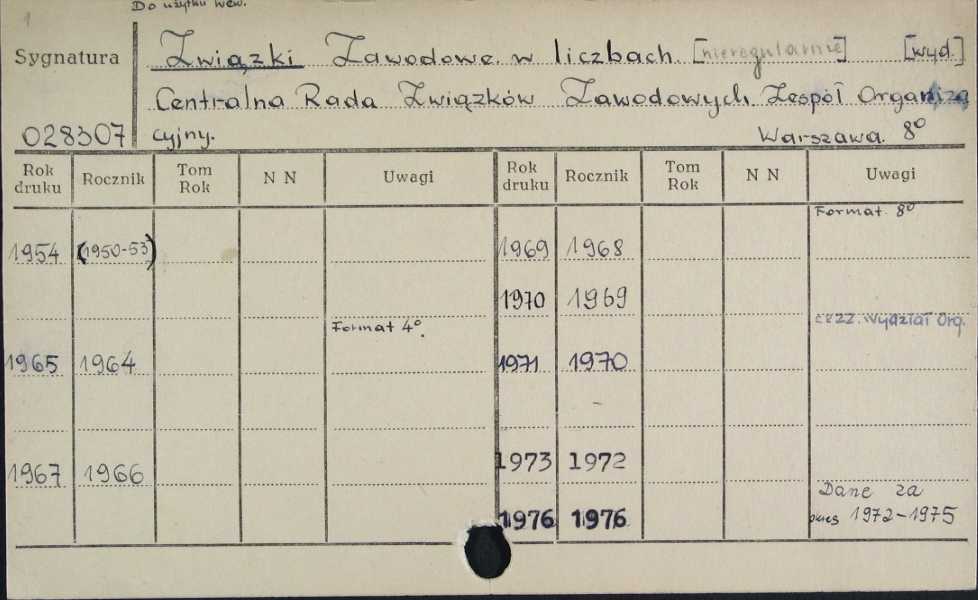 1
Do użytku wew.
Sygnatura
Związki Zawodowe w liczbach. [nieregularnie] [wyd.]
Centralna Rada Związków Zawodowych. Zespół Organiza
028307 cyjny. Warszawa. 8°
Rok druku Rocznik Tom Rok N N Uwagi Rok druku Rocznik Tom Rok N N Uwagi
Format 8°
1954 (1950-53) 1969 1968
1970 1969
Format 4°. CRZZ. Wydział Org.
1965 1964 1971 1970
–
1967 1966 1973 1972
Dane za
1976 1976 okres 1972-1975